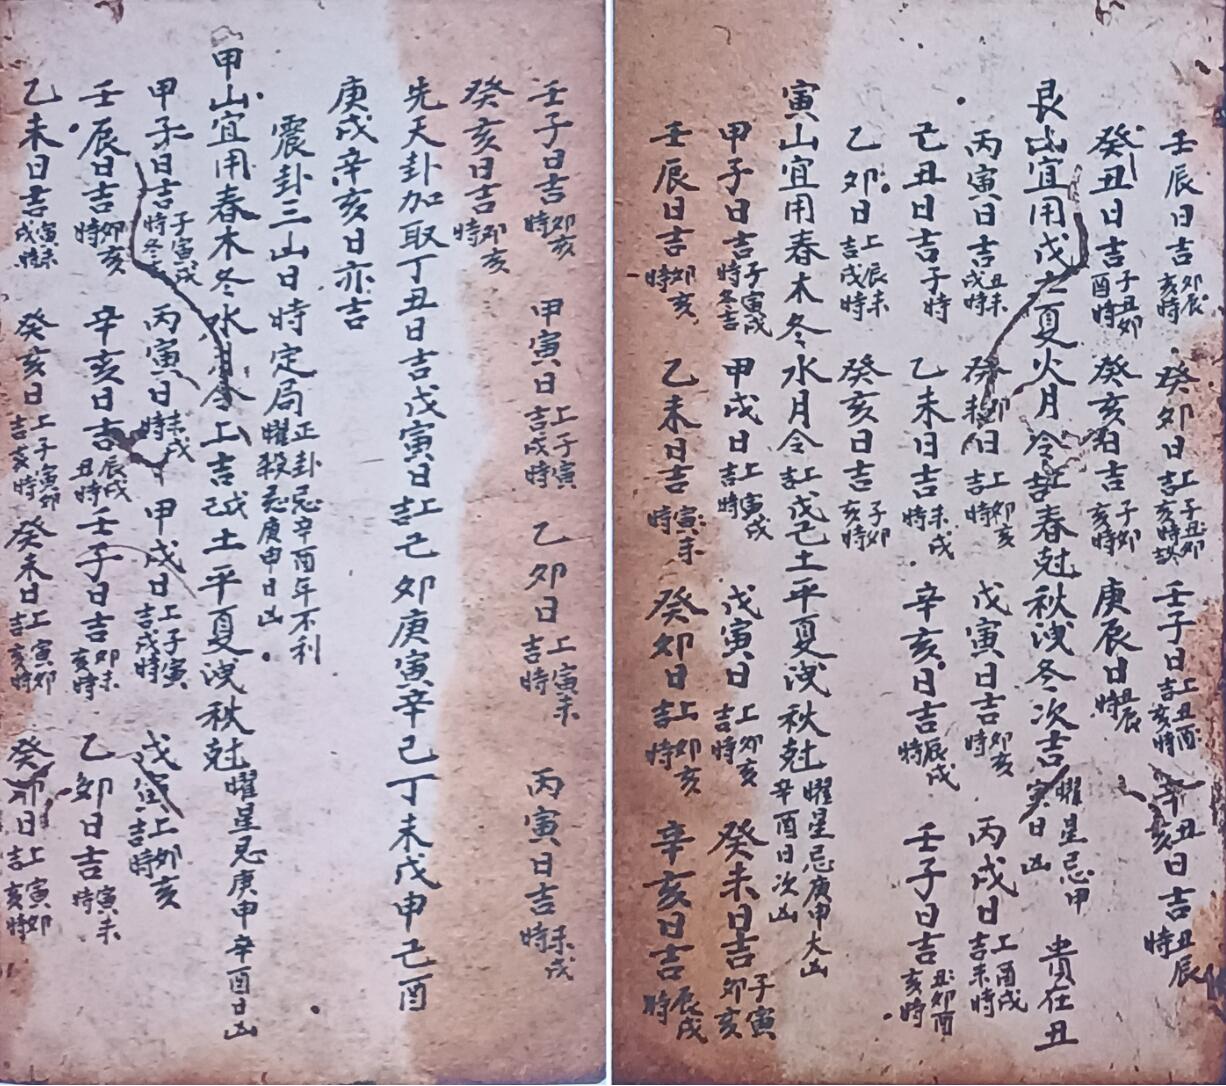 壬辰日吉卯辰亥時 癸卯日上吉子丑卯亥時 壬子日上吉丑酉亥時 辛丑日吉丑辰時
癸丑日吉子丑卯酉時 癸亥日吉子卯亥時 庚辰日丑辰時
艮山宜用戊己夏火月令上吉春尅秋洩冬次吉曜星忌甲寅日凶 貴在丑
丙寅日吉丑未戌時 癸卯日上吉卯亥時 戊寅日吉卯亥時 丙戌日上酉戌吉未時
己丑日吉子時 乙未日吉未戌時 辛亥日吉辰戌時 壬子日吉丑卯酉亥時
乙卯日上辰未吉戌時 癸亥日吉子卯亥時
寅山宜用春木冬水月令上吉戊己土平夏洩秋尅曜星忌庚申大凶辛酉日次凶
甲子日吉子寅戌時冬吉 甲戌日上寅戌吉時 戊寅日上卯亥吉時 癸未日吉子寅卯亥
壬辰日吉卯亥時 乙未日吉寅未時 癸卯日上吉卯亥時 辛亥日吉辰戌時
壬子日吉卯亥時 甲寅日上子寅吉戌時 乙卯日上寅未吉時 丙寅日吉未戌時
癸亥日吉卯亥時
先天卦加取丁丑日吉戊寅日上吉己卯庚寅辛巳丁未戊申己酉
庚戌辛亥日亦吉
震卦三山日時定局正卦忌辛酉年不利曜殺忌庚申日凶
甲山宜用春木冬水月令上吉戊己土平夏洩秋尅曜星忌庚申辛酉日凶
甲子日吉子寅戌時冬 丙寅日未戌時 甲戌日上子寅吉戌時 戊寅上吉卯亥時
壬辰日吉卯亥時 辛亥日吉辰戌丑時 壬子日吉卯未亥時 乙卯日吉寅未時
乙未日吉寅未戌時 癸亥日上子寅卯吉亥時 癸未日上寅卯吉亥時 癸卯日上吉寅卯亥時